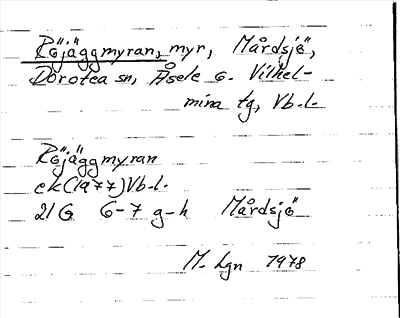 Röjäggmyran, myr, Mårdsjö,
Dorotea sn, Åsele o. Vilhel-
mina tg, Vb.l.
Röjäggmyran
ek (1977) Vb.l.
21 G 6-7 g-h Mårdsjö
M. Lgn 1978